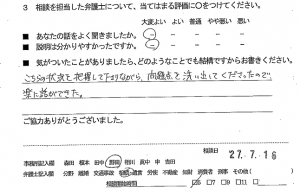 3 相談を担当した弁護士について、当てはまる評価に○をつけてください。
大変よい よい 普通 やや悪い 悪い
■ あなたの話をよく聞きましたか。
■ 説明は分かりやすかったですか。
■ 気がついたことがありましたら、どのようなことでも結構ですからお書きください。
こちらの状況を把握して下さりながら、問題点を洗い出してくださったので
楽に話ができた。
ご協力ありがとうございました。
相談日 27.7.16
事務局記入欄 森田 榎本 田中 吉田
弁護士記入欄 分野 離婚 交通事故 相続 遺言 労働 不動産 知財 消費者 刑事 その他(
相談開始時間 5 6 7 9 11